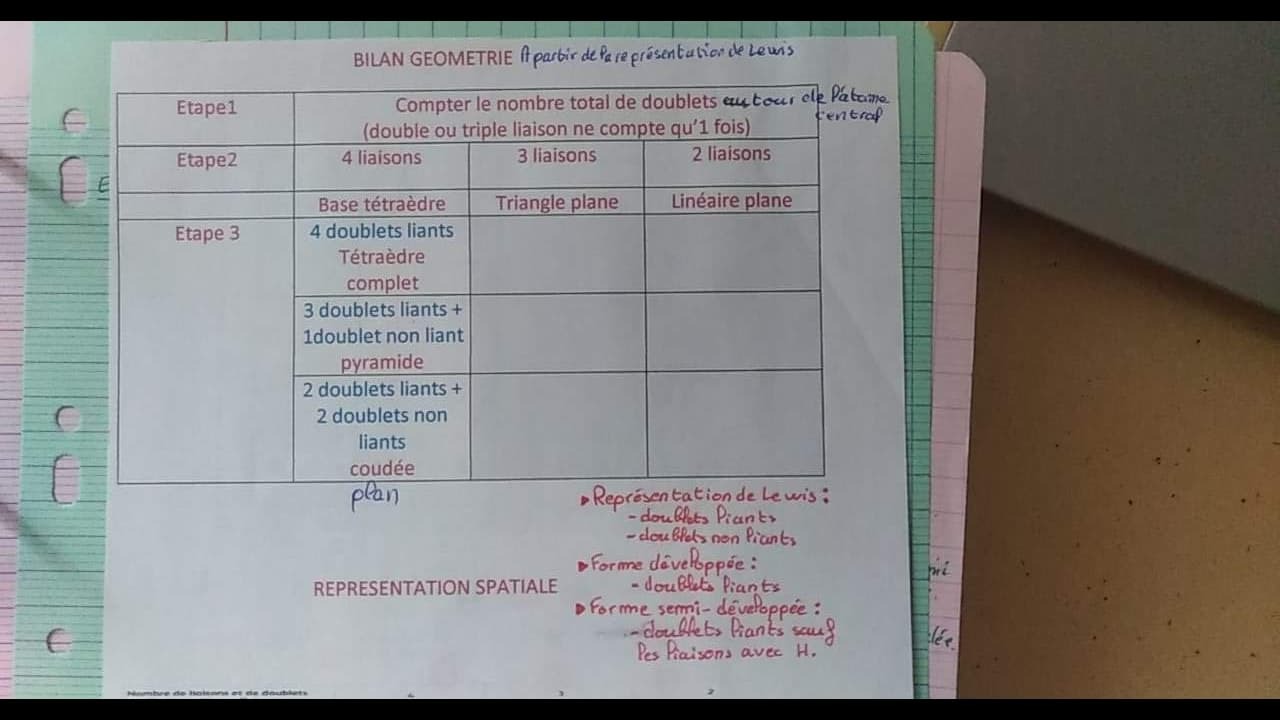 BILAN GEOMETRIE A partir de la représentation de Lewis
Etape1
Compter le nombre total de doublets autour de l'atome
central
(double ou triple liaison ne compte qu'1 fois)
Etape2
4 liaisons
3 liaisons
2 liaisons
Base tétraèdre
Triangle plane
Linéaire plane
Etape 3
4 doublets liants
Tétraèdre
complet
3 doublets liants +
1doublet non liant
pyramide
2 doublets liants +
2 doublets non
liants
coudée
plan
▸ Représentation de Lewis :
- doublets liants
- doublets non liants
▸ Forme développée :
- doublets liants
REPRESENTATION SPATIALE
▸ Forme semi-développée :
- doublets liants sauf
les liaisons avec H.
lée.
Nombre de liaisons et de doublets
4
3
2